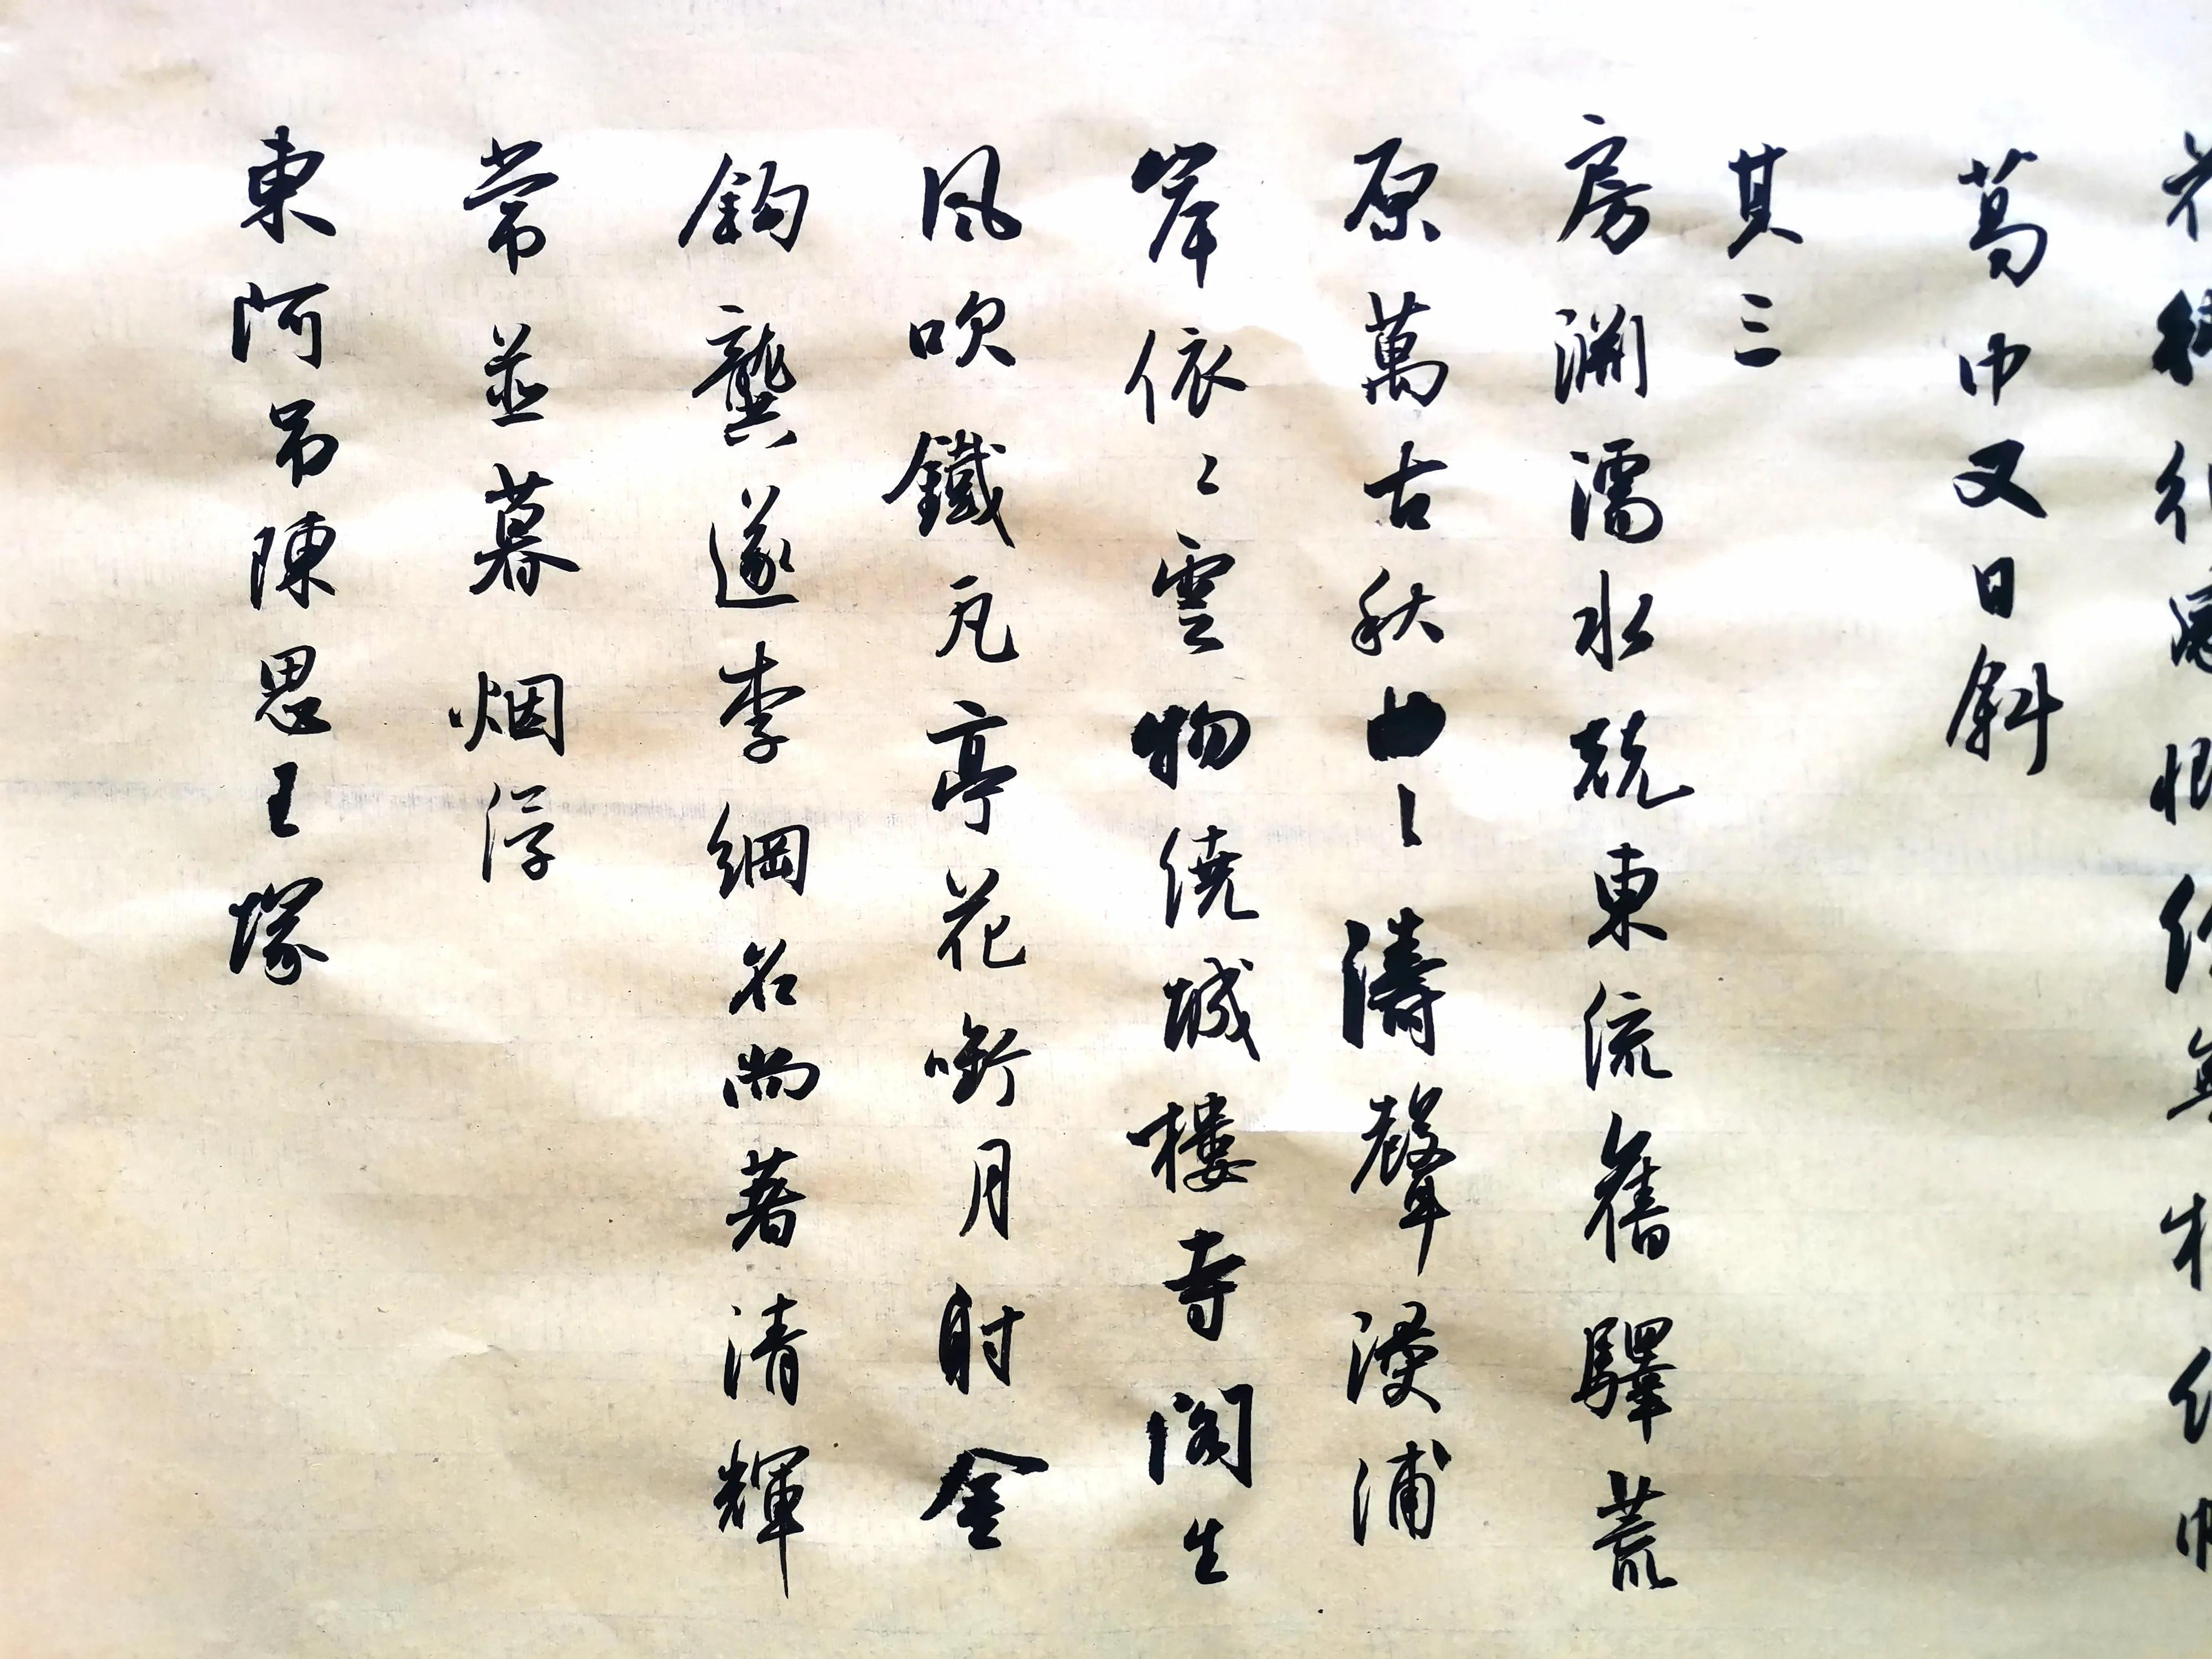 葛巾又日斜
其三
房淵濡水兢東流舊驛荒
原萬古秋曲〻濤聲浸浦
岸依〻雲物繞城樓寺阁生
风吹鐵瓦亭花嘶月射金
鈎龔遂李綱名尚著清輝
常並暮烟浮
東阿吊陳思王塚